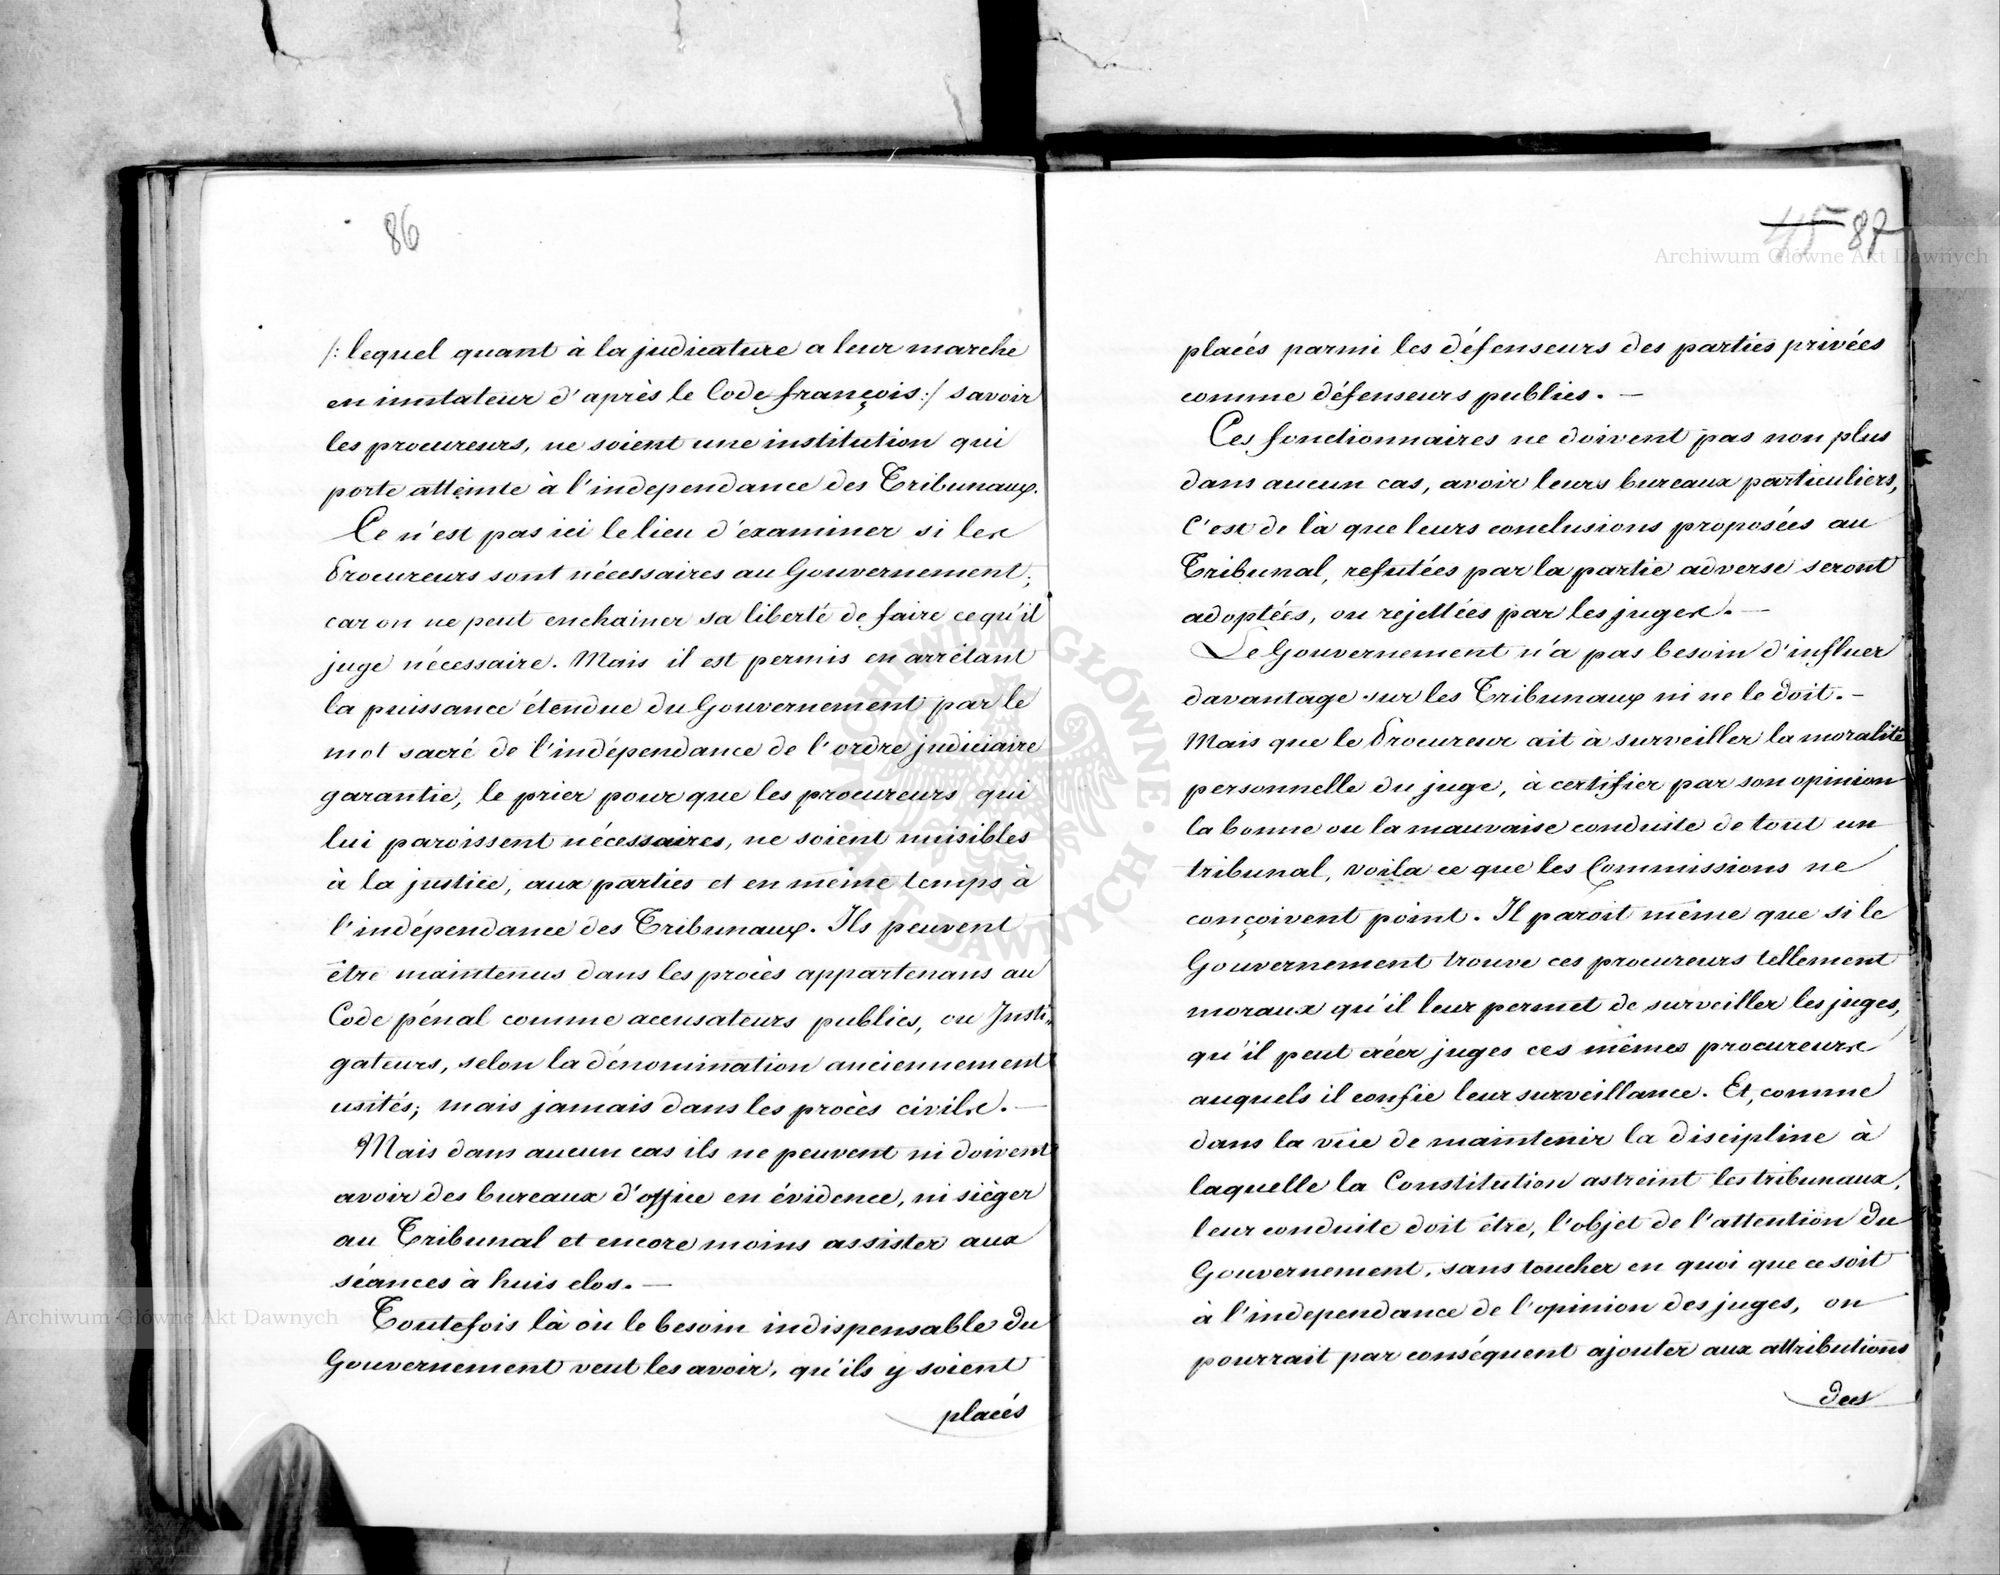 86
/: lequel quant à la judicature a leur marche
en imitateur d'après le Code françois :/ savoir
les procureurs, ne soient une institution qui
porte atteinte à l'independance des Tribunaux.
Ce n'est pas ici le lieu d'examiner si les
Procureurs sont nécessaires au Gouvernement;
car on ne peut enchainer sa liberté de faire ce qu'il
juge nécessaire. Mais il est permis en arrêtant
la puissance étendue du Gouvernement par le
mot sacré de l'indépendance de l'ordre judiciaire
garantie, le prier pour que les procureurs qui
lui paroissent nécessaires, ne soient nuisibles
à la justice, aux parties et en même temps à
l'indépendance des Tribunaux. Ils peuvent
être maintenus dans les procès appartenans au
Code pénal comme accusateurs publics, ou Insti=
gateurs, selon la dénomination anciennement
usités; mais jamais dans les procès civils. —
Mais dans aucun cas ils ne peuvent ni doivent
avoir des bureaux d'office en évidence, ni siéger
au Tribunal et encore moins assister aux
séances à huis clos. —
Toutefois là où le besoin indispensable du
Gouvernement veut les avoir, qu'ils y soient
placés
45 87
placés parmi les défenseurs des parties privées
comme défenseurs publics. —
Ces fonctionnaires ne doivent pas non plus
dans aucun cas, avoir leurs bureaux particuliers,
C'est de là que leurs conclusions proposées au
Tribunal, refutées par la partie adverse seront
adoptées, ou rejettées par les juges. —
Le Gouvernement n'a pas besoin d'influer
davantage sur les Tribunaux ni ne le doit. —
Mais que le Procureur ait à surveiller la moralité
personnelle du juge, à certifier par son opinion
la bonne ou la mauvaise conduite de tout un
tribunal, voila ce que les Commissions ne
conçoivent point. Il paroit même que si le
Gouvernement trouve ces procureurs tellement
moraux qu'il leur permet de surveiller les juges,
qu'il peut créer juges ces mêmes procureurs
auquels il confie leur surveillance. Et, comme
dans la vüe de maintenir la discipline à
laquelle la Constitution astreint les tribunaux,
leur conduite doit être, l'objet de l'attention du
Gouvernement, sans toucher en quoi que ce soit
à l'independance de l'opinion des juges, on
pourrait par conséquent ajouter aux attributions
des
Archiwum Główne Akt Dawnych
Archiwum Główne Akt Dawnych
ARCHIWUM GŁÓWNE · AKT DAWNYCH ·